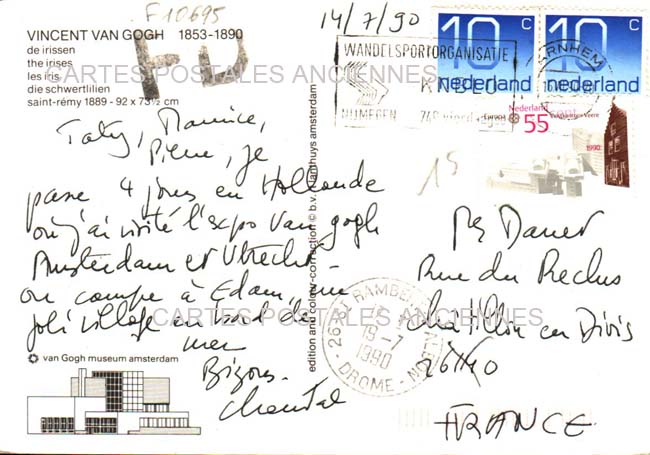 F10695
14/7/90
VINCENT VAN GOGH 1853-1890
de irissen
the irises
les iris
die schwertlilien
saint-rémy 1889 - 92 x 73½ cm
WANDELSPORTORGANISATIE
NIJMEGEN
ARNHEM
10 c
nederland
10 c
nederland
Nederland
55
1990
CARTES POSTALES ANCIENNES
Maurice,
Pierre, je
passe 4 jours en Hollande
où j'ai visité l'expo Van Gogh
Amsterdam et Utrecht
on campe à Edam, un
joli village en bord de
mer
Bizous.
Chantal
15
edition and colour-correction © b.v. amsterdam
Rue du Reclus
Châtillon en Diois
26410
FRANCE
18-7
1990
DROME
CARTES POSTALES ANCIENNES
van Gogh museum amsterdam